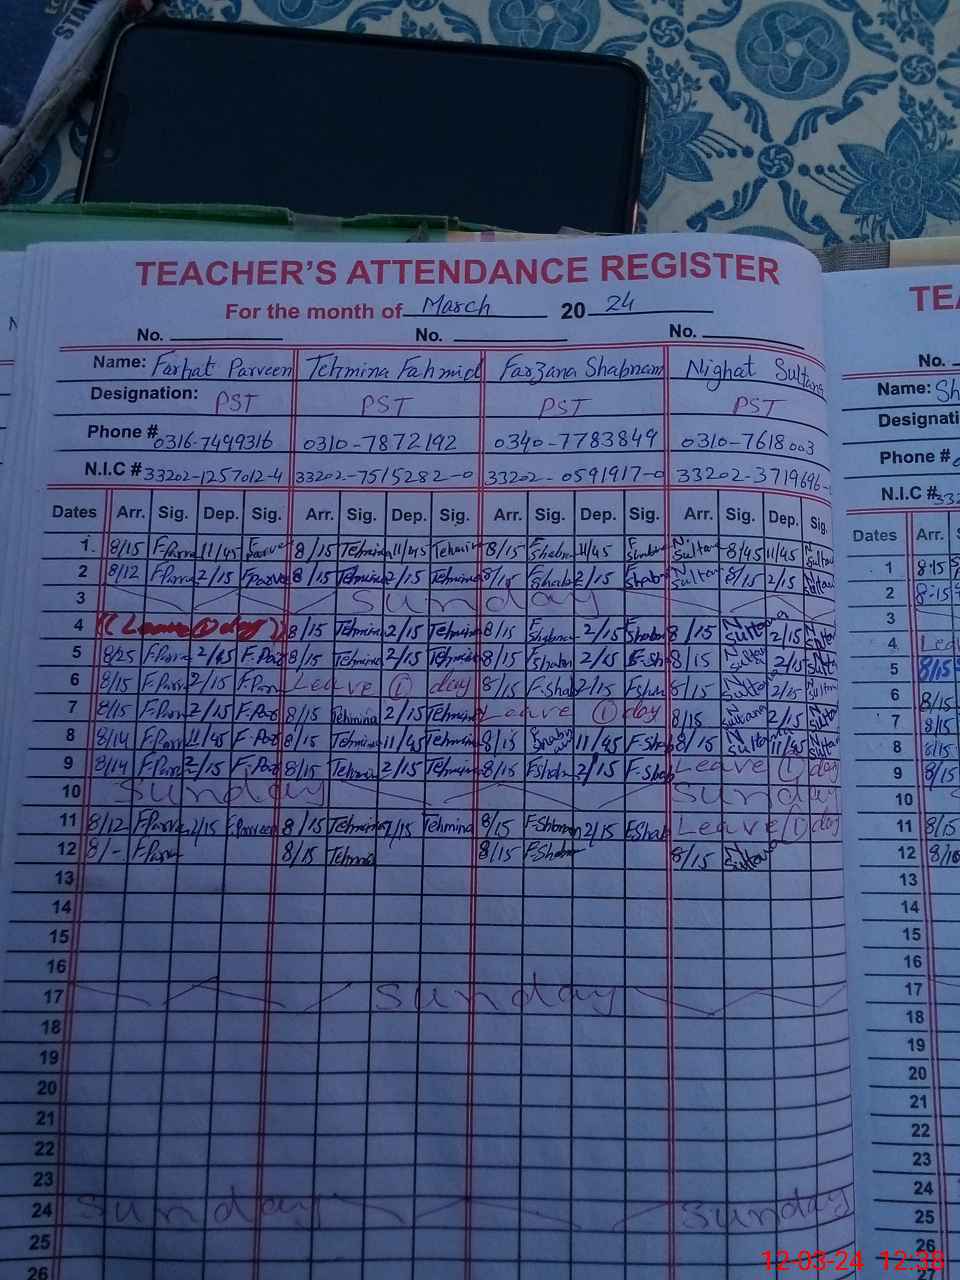 STAN
TEACHER'S ATTENDANCE REGISTER
For the month of March 20 24
No. No. No.
Name: Farhat Parveen Tehmina Fahmid Farzana Shabnam Nighat Sultana
Designation: PST PST PST PST
Phone # 0316-7499316 0310-7872192 0340-7783849 0310-7618003
N.I.C # 33202-1257012-4 33202-7515282-0 33202-0591917-0 33202-3719696-
Dates Arr. Sig. Dep. Sig. Arr. Sig. Dep. Sig. Arr. Sig. Dep. Sig. Arr. Sig. Dep. Sig.
1. 8/15 F.Parve 11/45 F Parve 8/15 Tehmina 11/45 Tehmina 8/15 F Shabn 11/45 F N Sultan 8/45 11/45 N Sultan
2 8/12 F.Parve 2/15 F.Parve 8/15 Tehmina 2/15 Tehmina F.Shab 2/15 F Shab N Sultan 8/15 2/15 N Sultan
3 Sunday
4 (Leave (1) day) 8/15 Tehmina 2/15 Tehmina 8/15 F Shabna 2/15 F.Shabna 8/15 N Sultana 2/15 N Sultan
5 8/25 F.Parve 2/45 F.Par 8/15 Tehmina 2/15 Tehmina 8/15 F Shabn 2/45 F-Sh 8/15 N Sultan 2/15 N Sult
6 8/15 F.Parv 2/15 F.Parv Leave (1) day 8/15 F-Shab 2/15 F 8/15 N Sultana 2/15 N Sultan
7 8/15 F.Parv 2/15 F.Par 8/15 Tehmina 2/15 Tehmina Leave (1) day 8/15 N Sultana 2/15 N Sulta
8 8/14 F.Parv 11/45 F.Par 8/15 Tehmina 11/45 Tehmina 8/15 F Shabn 11/45 F-Sha 8/15 N Sultana 11/45 N Sultan
9 8/14 F.Parv 2/15 F.Par 8/15 Tehmina 2/15 Tehmina 8/15 FShabn 2/15 F-Shab Leave (1) day
10 Sunday Sunday
11 8/12 F.Parve 2/15 F.Parveen 8/15 Tehmina 2/15 Tehmina 8/15 F-Shbnam 2/15 F.Shab Leave (1) day
12 8/- F.Parv 8/15 Tehmina 8/15 F.Shabn 8/15 N Sultana
13
14
15
16
17 Sunday
18
19
20
21
22
23
24 Sunday Sunday
25
26
TEA
No.
Name: Sh
Designati
Phone #
N.I.C #
Dates Arr.
1 8.15
2 8-15
3
4 Lea
5 8/15
6 8/15
7 8/15
8 8/15
9 8/15
10
11 8/15
12 8/10
13
14
15
16
17
18
19
20
21
22
23
24
25
26
12-03-24 12:38